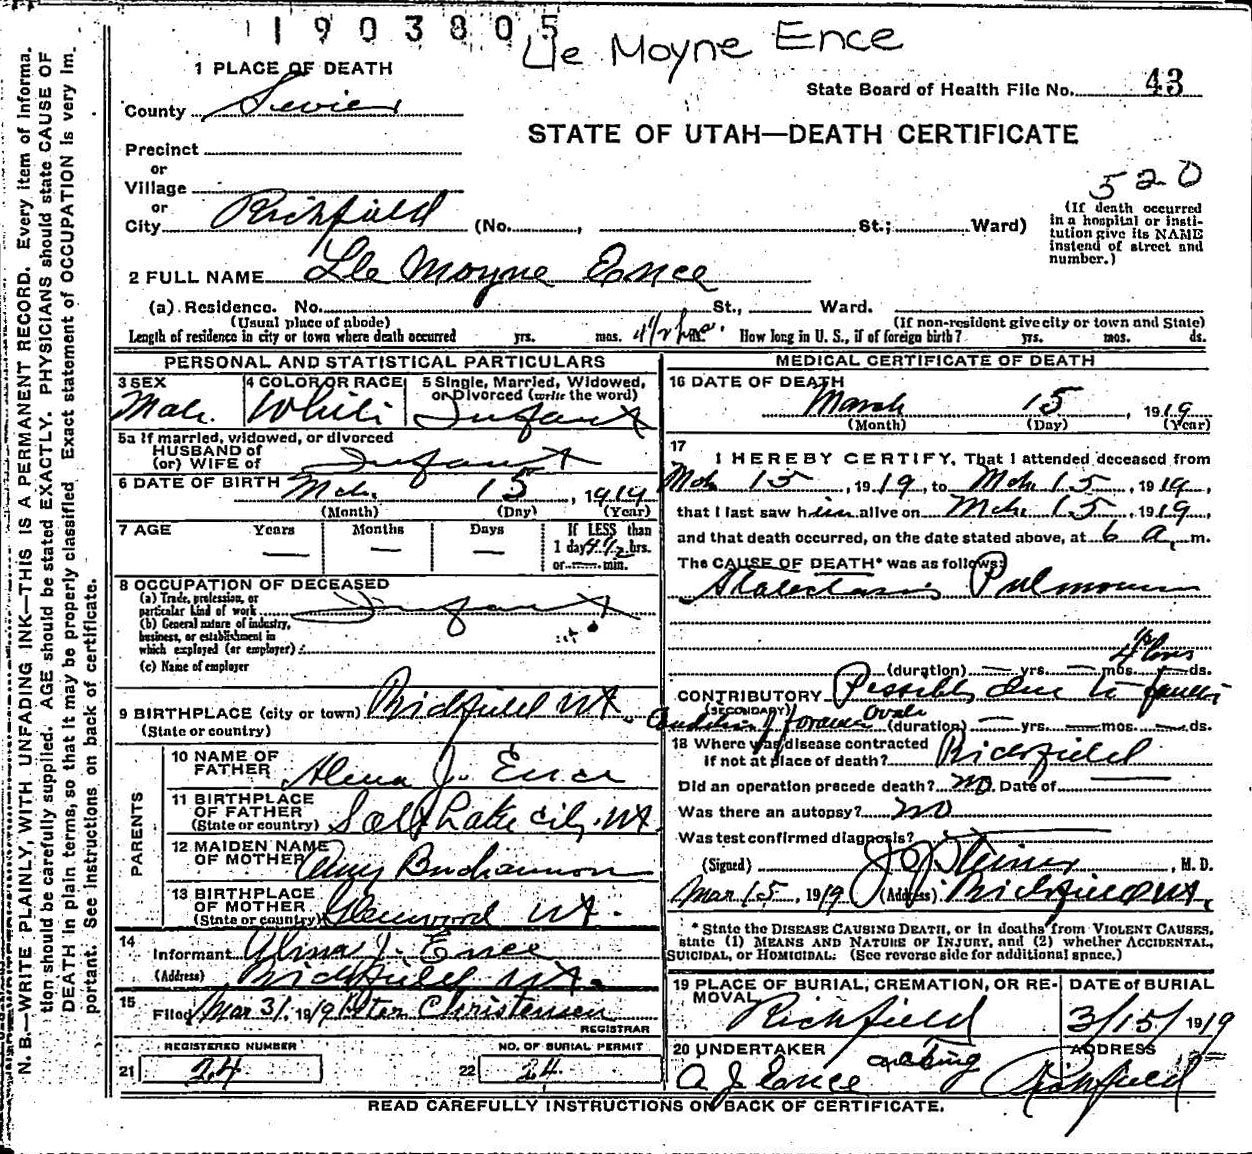 1903805
Le Moyne Ence
1 PLACE OF DEATH
State Board of Health File No. 43
County Sevier
STATE OF UTAH—DEATH CERTIFICATE
Precinct
or
Village
520
or
City Richfield (No. , St.; Ward)
(If death occurred in a hospital or institution give its NAME instead of street and number.)
2 FULL NAME Le Moyne Ence
(a) Residence. No. St., Ward.
(Usual place of abode) (If non-resident give city or town and State)
Length of residence in city or town where death occurred yrs. mos. 4½ hrs. How long in U. S., if of foreign birth? yrs. mos. ds.
PERSONAL AND STATISTICAL PARTICULARS
3 SEX 4 COLOR OR RACE 5 Single, Married, Widowed, or Divorced (write the word)
Male White Infant
5a If married, widowed, or divorced
HUSBAND of
(or) WIFE of Infant
6 DATE OF BIRTH Mch. 15, 1919
(Month) (Day) (Year)
7 AGE Years Months Days If LESS than
— — — 1 day 4½ hrs.
or — min.
8 OCCUPATION OF DECEASED
(a) Trade, profession, or
particular kind of work Infant
(b) General nature of industry,
business, or establishment in
which employed (or employer)
(c) Name of employer
9 BIRTHPLACE (city or town) Richfield Ut.
(State or country)
PARENTS
10 NAME OF
FATHER Alma J. Ence
11 BIRTHPLACE
OF FATHER
(State or country) Salt Lake City. Ut.
12 MAIDEN NAME
OF MOTHER Amy Buchannon
13 BIRTHPLACE
OF MOTHER
(State or country) Glenwood Ut.
14
Informant Alma J. Ence
(Address) Richfield Ut.
15
Filed Mar 31, 1919 Peter Christensen
REGISTRAR
REGISTERED NUMBER NO. OF BURIAL PERMIT
21 24 22 24
MEDICAL CERTIFICATE OF DEATH
16 DATE OF DEATH
March 15, 1919
(Month) (Day) (Year)
17
I HEREBY CERTIFY, That I attended deceased from
Mch 15, 1919, to Mch 15, 1919,
that I last saw him alive on Mch 15, 1919,
and that death occurred, on the date stated above, at 6 a. m.
The CAUSE OF DEATH* was as follows:
Atalectasis Pulmonum
4½ hrs
(duration) — yrs. — mos. — ds.
CONTRIBUTORY Possibly due to faulty
(SECONDARY)
condition of foramen Ovale (duration) — yrs. — mos. — ds.
18 Where was disease contracted
if not at place of death? Richfield
Did an operation precede death? no. Date of —
Was there an autopsy? no
Was test confirmed diagnosis? —
(Signed) J. G. Steiner, M. D.
Mar 15, 1919 (Address) Richfield Ut.
* State the DISEASE CAUSING DEATH, or in deaths from VIOLENT CAUSES,
state (1) MEANS AND NATURE OF INJURY, and (2) whether ACCIDENTAL,
SUICIDAL, or HOMICIDAL. (See reverse side for additional space.)
19 PLACE OF BURIAL, CREMATION, OR RE- DATE OF BURIAL
MOVAL
Richfield 3/15/1919
20 UNDERTAKER acting ADDRESS
A J Ence Richfield
READ CAREFULLY INSTRUCTIONS ON BACK OF CERTIFICATE.
N. B.—WRITE PLAINLY, WITH UNFADING INK—THIS IS A PERMANENT RECORD. Every item of informa-
tion should be carefully supplied. AGE should be stated EXACTLY. PHYSICIANS should state CAUSE OF
DEATH in plain terms, so that it may be properly classified. Exact statement of OCCUPATION is very im-
portant. See Instructions on back of certificate.